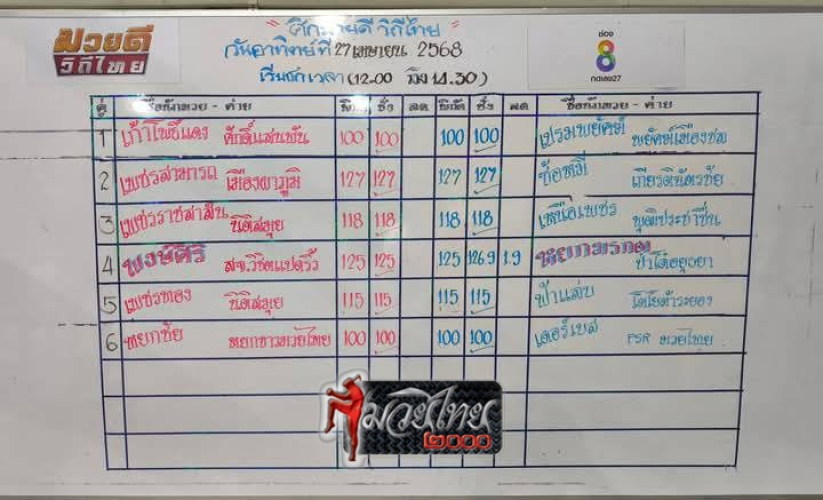 มวยดี
วิถีไทย
" ศึกมวยดี วิถีไทย "
วันอาทิตย์ที่ 27 เมษายน 2568
เริ่มชกเวลา (12.00 ถึง 14.30)
ช่อง
8
กดเลข27
คู่ ชื่อนักมวย - ค่าย พิกัด ชั่ง ลด พิกัด ชั่ง ลด ชื่อนักมวย - ค่าย
1 เก้าโพธิ์แดง ศักดิ์แสนพัน 100 100 100 100 เปรมพยัคฆ์ พยัคฆ์เมืองชล
2 เพชรสามารถ เมืองผาภูมิ 127 127 127 127 ซ้อหมี เกียรติฉัตรชัย
3 เพชรราชสาส์น นิติสมุย 118 118 118 118 เหนือเพชร พุฒิประชาชื่น
4 พงษ์ศิริ ส.จ.วิชิตแปดริ้ว 125 125 125 126.9 1.9 ป๋าโต้อยุธยา
5 เพชรทอง นิติสมุย 115 115 115 115 ฟ้าแลบ
6 หยกชัย หยกขาวมวยไทย 100 100 100 100 เดอร์เบส PSR มวยไทย
มวยไทย
๒๐๐๐